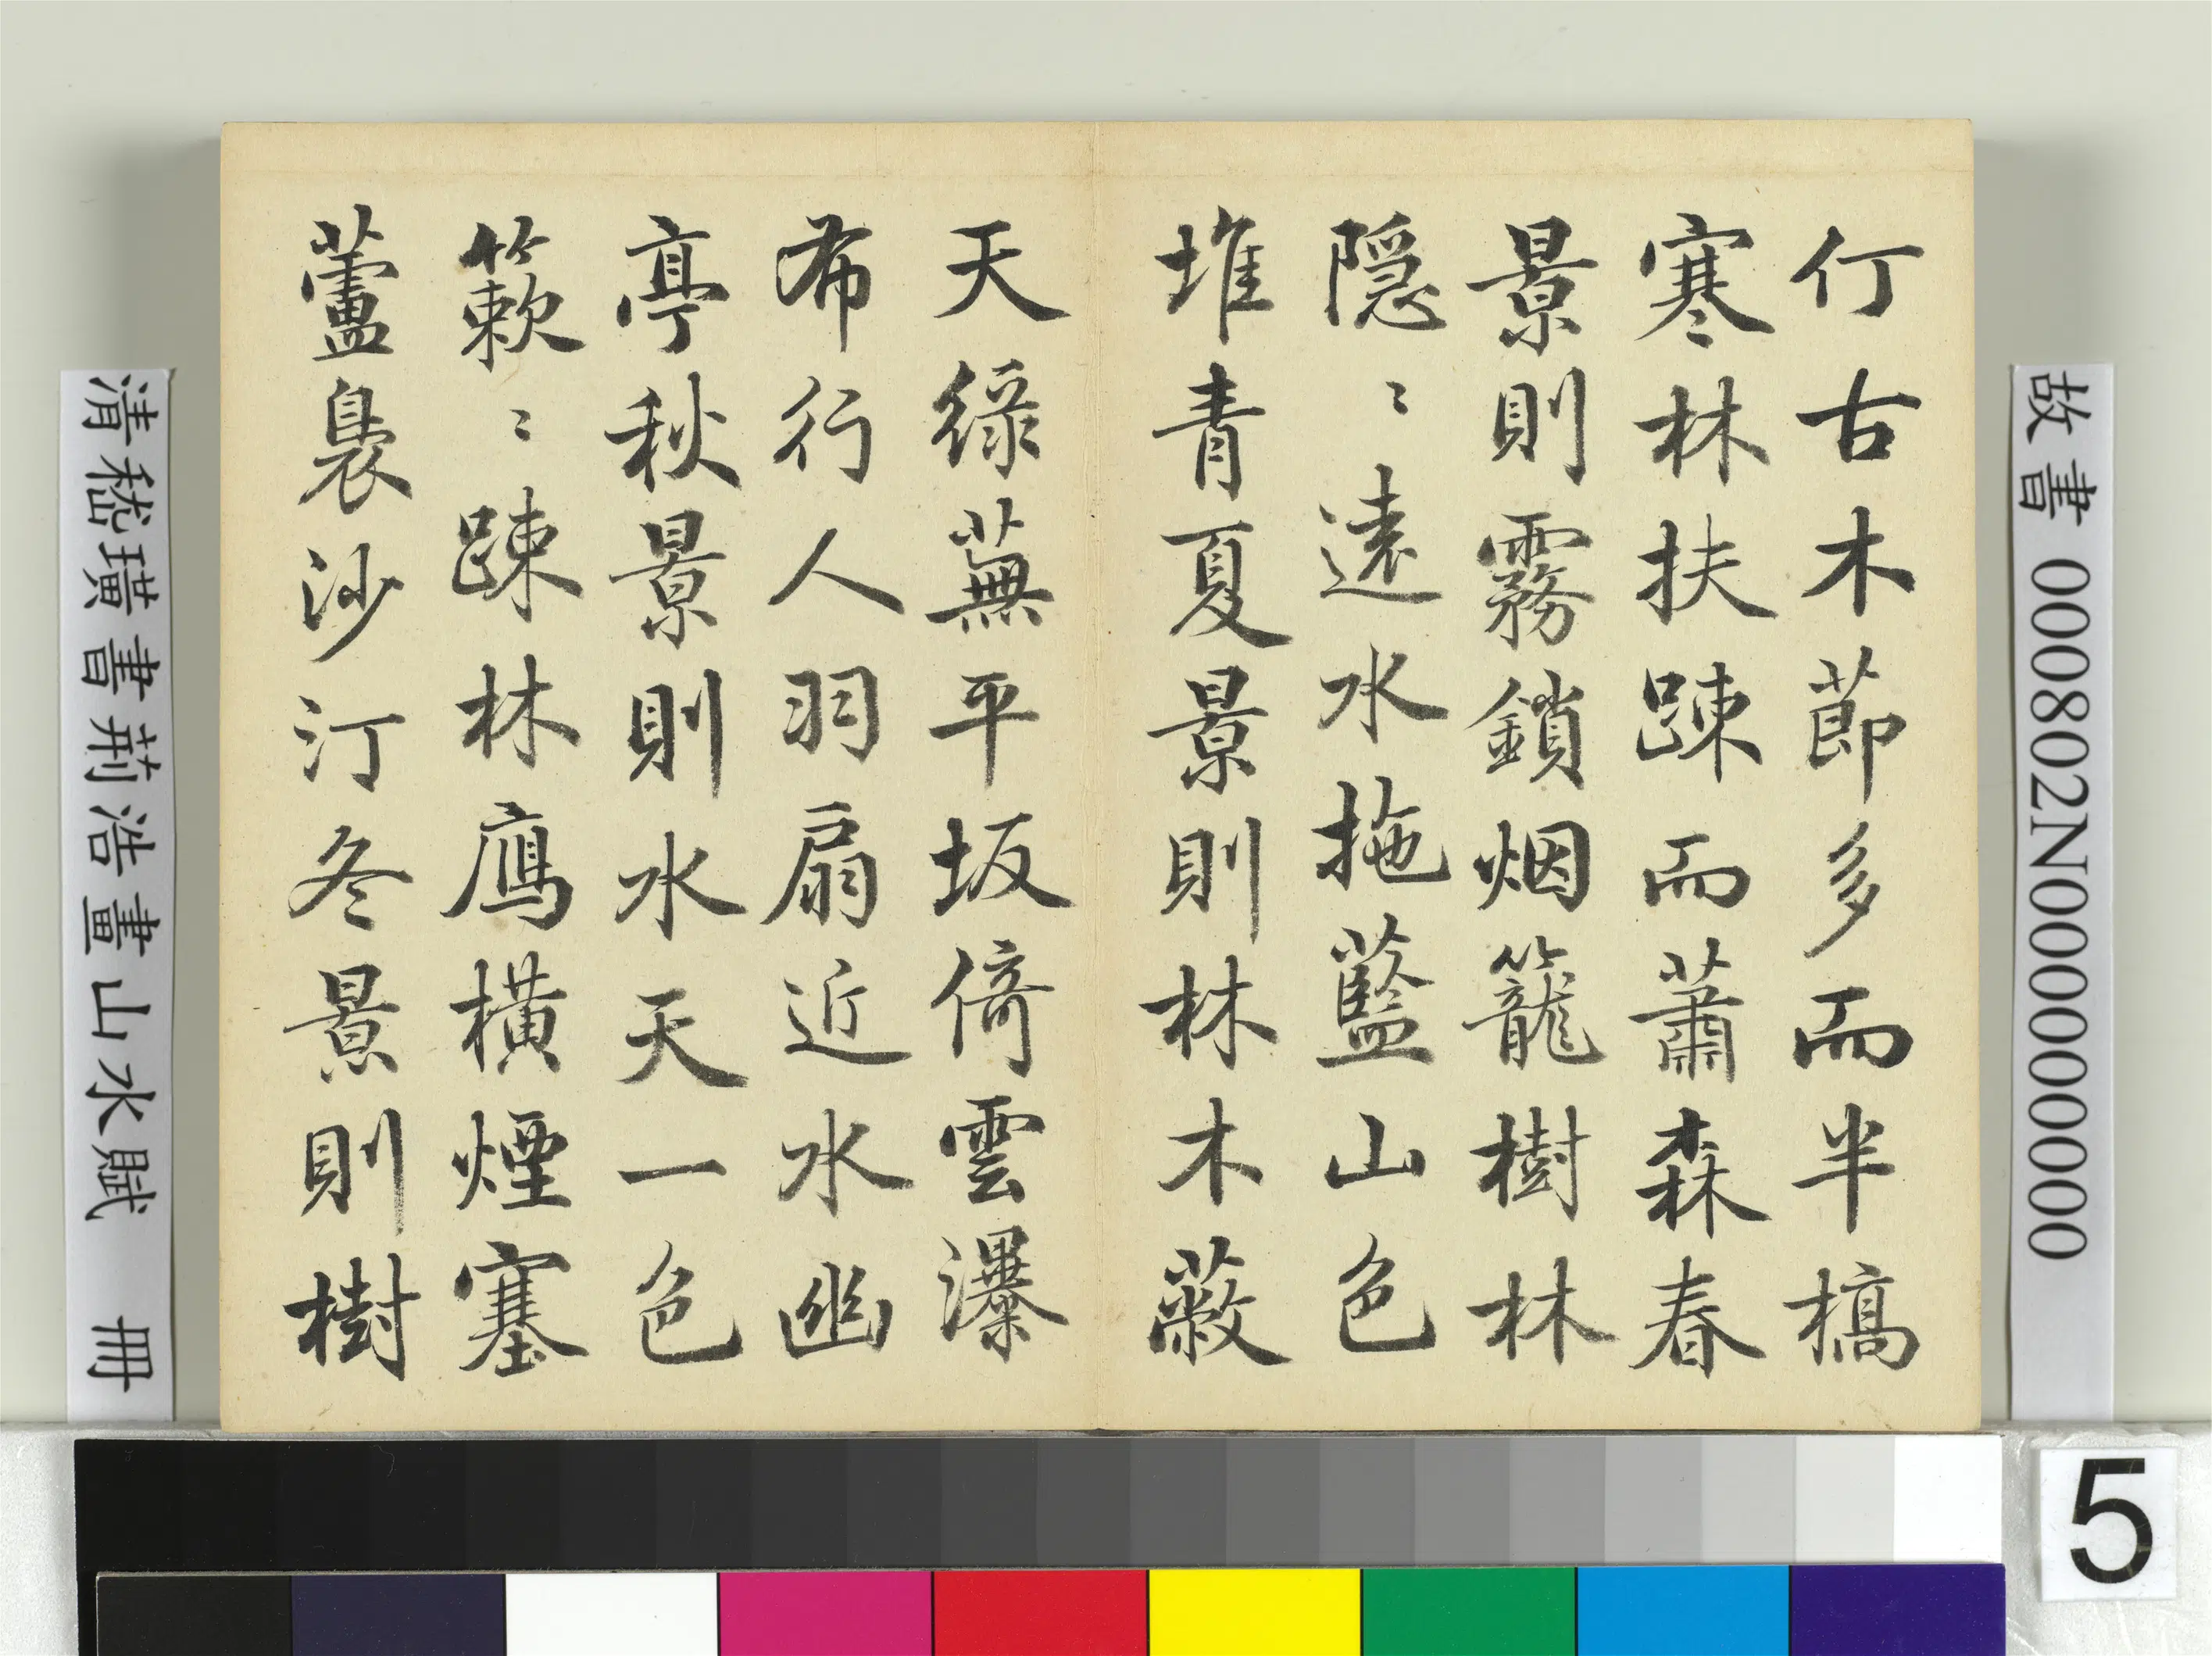 故書 000802N000000000
仃古木莭多而半槁
寒林扶踈而蕭森春
景則霧鎖烟籠樹林
隠〻遠水拖藍山色
堆青夏景則林木蔽
天緑蕪平坂倚雲瀑
布行人羽扇近水幽
亭秋景則水天一色
簌〻踈林鴈橫煙塞
蘆裊沙汀冬景則樹
清嵇璜書荊浩畫山水賦 冊
5